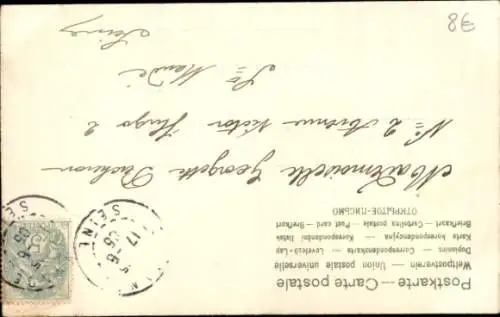 Postkarte — Carte postale
Weltpostverein — Union postale universelle
Dopisnice — Correspondenzkarte — Levelező-Lap
Karta korespondencyjna — Korespondenční lístek
Briefkaart — Cartolina postale — Post card — Brefkort
ОТКРЫТОЕ-ПИСЬМО
Mademoiselle Georgette
No 2 Avenue Victor Hugo 2
St Mandé
(Seine)
78
17
SEINE
SEINE